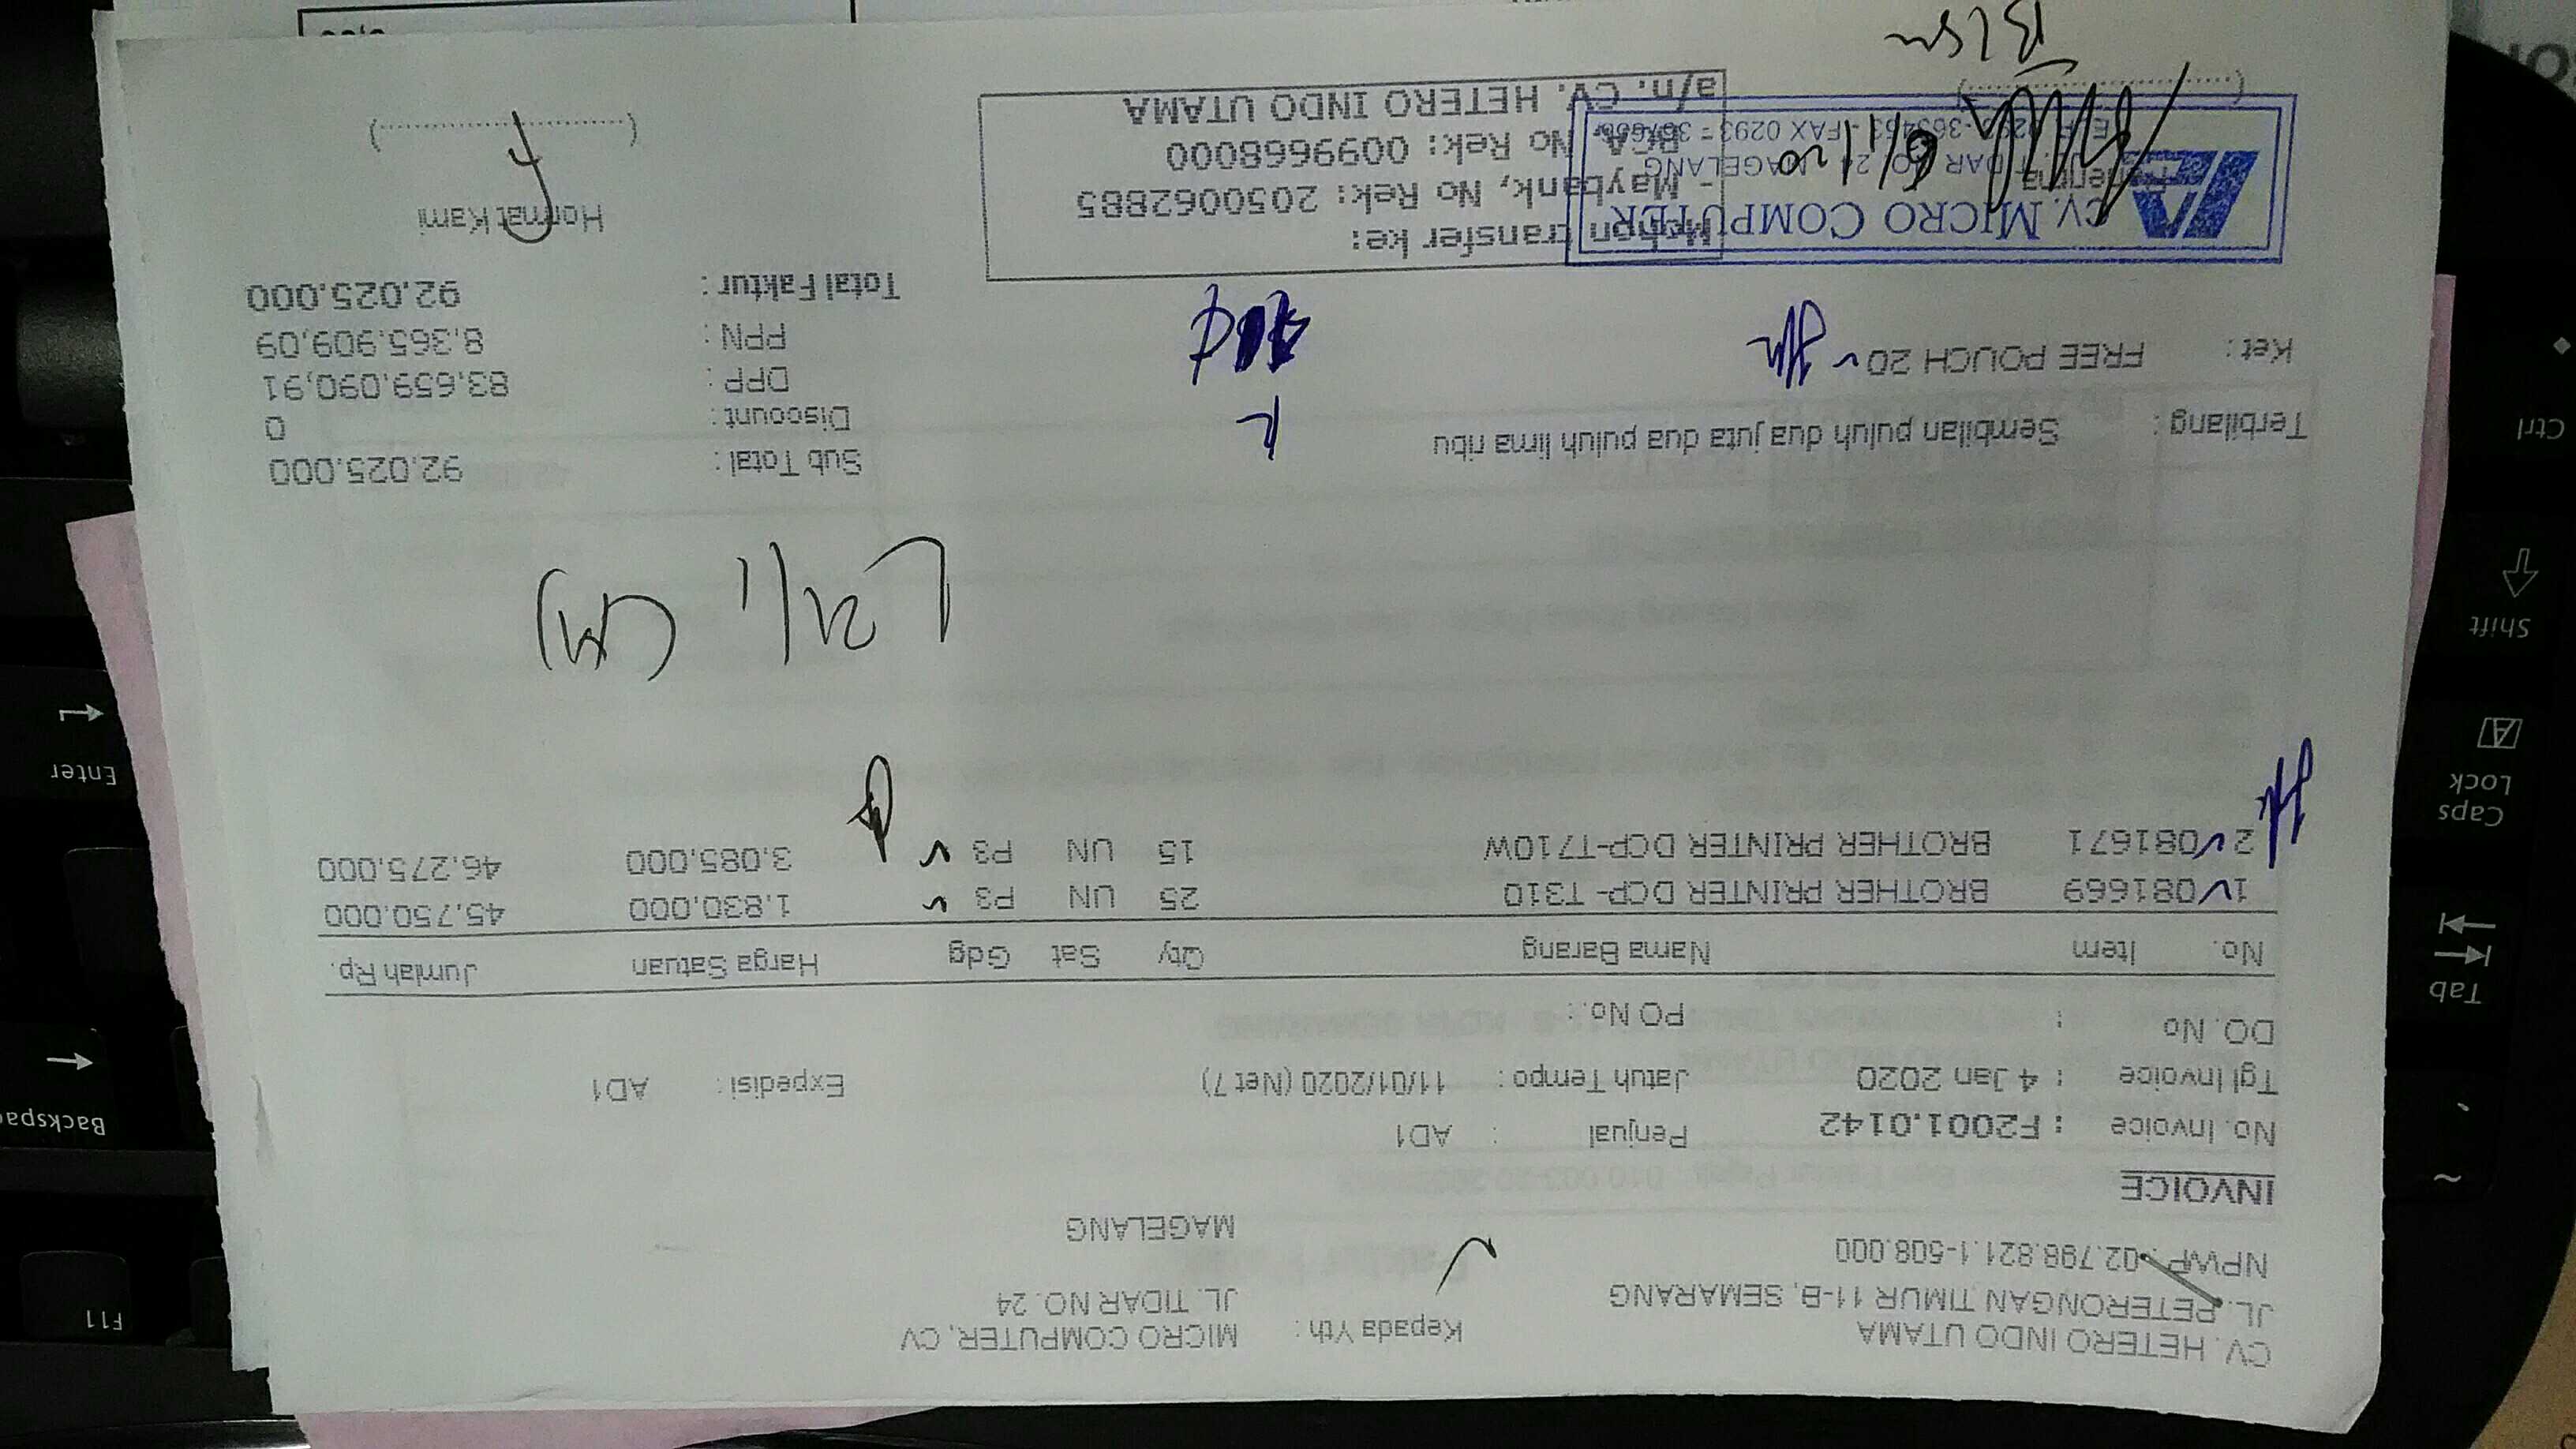 CV. HETERO INDO UTAMA
JL. PETERONGAN TIMUR 11-B, SEMARANG
NPWP : 02.798.821.1-508.000
Kepada Yth : MICRO COMPUTER, CV
JL. TIDAR NO. 24
MAGELANG
INVOICE
No. Invoice : F2001.0142 Penjual : AD1
Tgl Invoice : 4 Jan 2020 Jatuh Tempo : 11/01/2020 (Net 7) Expedisi : AD1
DO. No : PO No. :
No. Item Nama Barang Qty Sat Gdg Harga Satuan Jumlah Rp.
1 081669 BROTHER PRINTER DCP- T310 25 UN P3 1.830.000 45.750.000
2 081671 BROTHER PRINTER DCP-T710W 15 UN P3 3.085.000 46.275.000
Terbilang : Sembilan puluh dua juta dua puluh lima ribu
Ket : FREE POUCH 20
Sub Total : 92.025.000
Discount : 0
DPP : 83.659.090,91
PPN : 8.365.909,09
Total Faktur : 92.025.000
Penerima
CV. MICRO COMPUTER
JL. TIDAR NO. 24 MAGELANG
FAX 0293
6/1 20
Mohon transfer ke:
- Maybank, No Rek: 2050062885
BCA, No Rek: 0099668000
a/n. CV. HETERO INDO UTAMA
Hormat Kami
(....................)
Backspa
Tab
Caps
Lock
Shift
Ctrl
Enter
F11
~